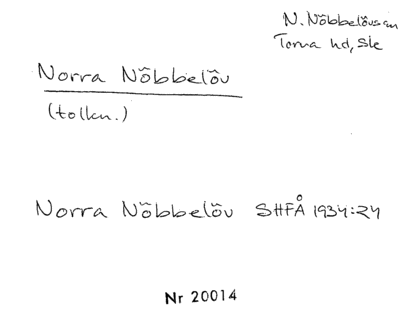 N. Nöbbelövs sn
Torna hd, Sk
Norra Nöbbelöv
(tolkn.)
Norra Nöbbelöv SHFÅ 1934:24
Nr 20014